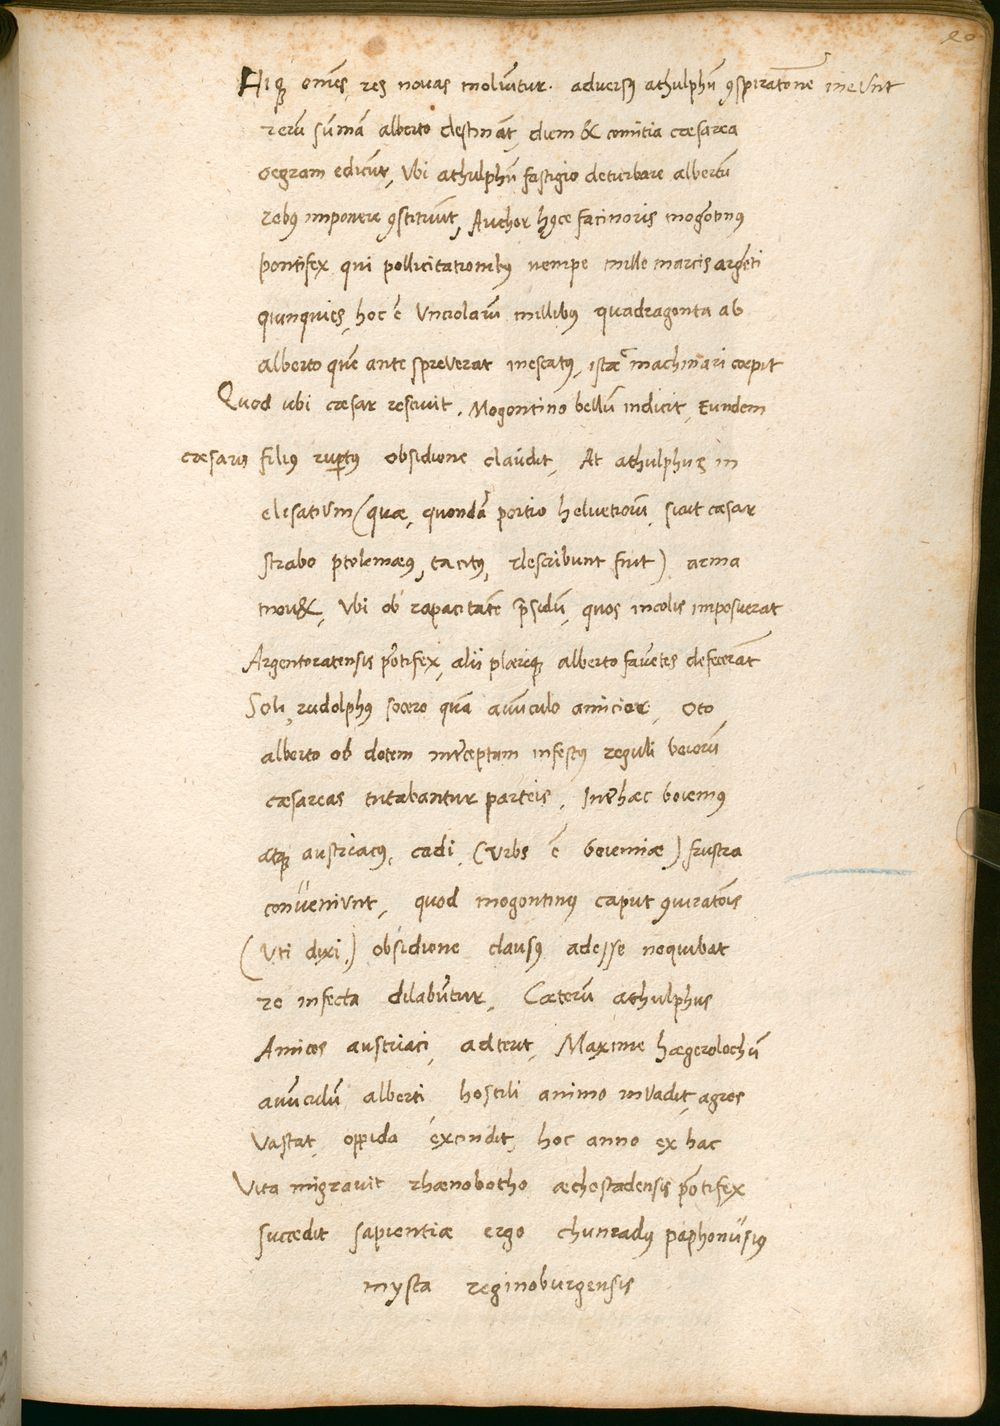 20
Hiq; om̃es, res novas moliũtur. adversꝰ athulphũ ꝯspirationẽ ineunt
rerũ sũmã alberto destinãt, diem & comitia cæsarea
oegram edicũt, Vbi athulphũ fastigio deturbare albertũ
rebꝰ imponere ꝯstituũt, Author hꝰce facinoris mogõtinꝰ
pontifex qui pollicitationibꝰ nempe mille marcis argẽti
quinquies, hoc ẽ Vnciolarũ millibꝰ quadragonta ab
alberto quẽ ante spreverat inescatꝰ, istæc machinari cœpit
Quod ubi cæsar rescivit, Mogontino bellũ indicit, Eundem
cæsaris filiꝰ ruptꝰ obsidione claudit, At athulphus in
elisatium (quæ, quondã portio helvetiorũ, sicut cæsar
strabo ptolemæꝰ, tacitꝰ, describunt fuit) arma
mou&, Vbi ob rapacitatẽ p̃sidũ, quos incolis imposuerat
Argentoratensis põtifex, alii plæriq; alberto favẽtes defecerãt
Soli, rudolphꝰ socero quã avũculo amicior, Oto,
alberto ob dotem interceptam infestꝰ reguli boiorũ
cæsareas tutabantur parteis, Inter hæc boiemꝰ
atq; austriacꝰ, cadi (Vrbs ẽ boiemiæ) frustra
conveniunt, quod mogontinꝰ caput ꝯiurationis
(Vti dixi) obsidione clausꝰ adesse nequibat
re infecta dilabũtur, Cæterũ athulphus
Amicos austriaci, adterit, Maxime hægerolochũ
avũculũ alberti, hostili animo invadit, agros
Vastat, oppida excindit, hoc anno ex hac
Vita migravit rhænobotho æchostadensis põtifex
succedit sapientiæ ergo chunradꝰ paphonusiꝰ
mysta reginoburgensis